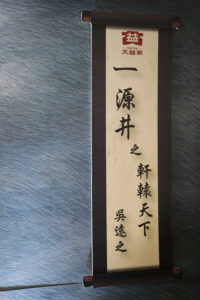 益
大益茶
一源井
之
軒轅天下
吳遠之